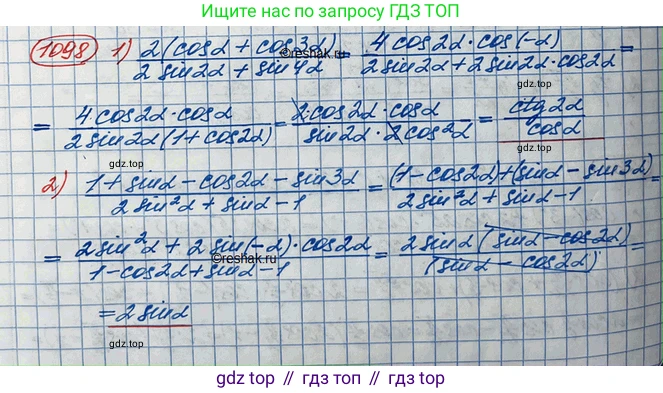 Ищите нас по запросу ГДЗ ТОП
1098 1) 2(cosα + cos3α) / (2 sin2α + sin4α) = 4cos2α·cos(-α) / (2 sin2α + 2 sin2α·cos2α) =
©reshak.ru
gdz.top
= 4cos2α·cosα / (2 sin2α(1+cos2α)) = 2·cos2α·cosα / (sin2α·2cos²α) = ctg2α / cosα
gdz.top
gdz.top
2) (1+sinα-cos2α-sin3α) / (2 sin²α + sinα-1) = ((1-cos2α)+(sinα-sin3α)) / (2 sin²α + sinα-1) =
= (2 sin²α + 2 sin(-α)·cos2α) / (1-cos2α+sinα-1) = 2 sinα (sinα-cos2α) / (sinα - cos2α) =
©reshak.ru
gdz.top
= 2 sinα
gdz.top
gdz top // гдз топ // gdz top